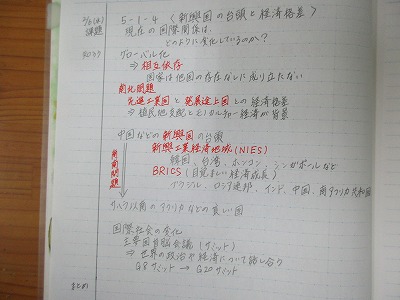 5-1-4 〈新興国の台頭と経済格差〉
課題
現在の国際関係は、
どのように変化しているのか？
グローバル化
⇒ 相互依存
国家は他国の存在なしに成り立たない
南北問題
先進工業国と発展途上国との経済格差
⇒ 植民地支配とモノカルチャー経済が背景
中国などの新興国の台頭
新興工業経済地域(NIES)
韓国、台湾、ホンコン、シンガポールなど
BRICS(目覚ましい経済成長)
ブラジル、ロシア連邦、インド、中国、南アフリカ共和国
南南問題
サハラ以南のアフリカなどの貧しい国
国際社会の変化
主要国首脳会議(サミット)
⇒ 世界の政治や経済について話し合う
G8サミット → G20サミット
まとめ